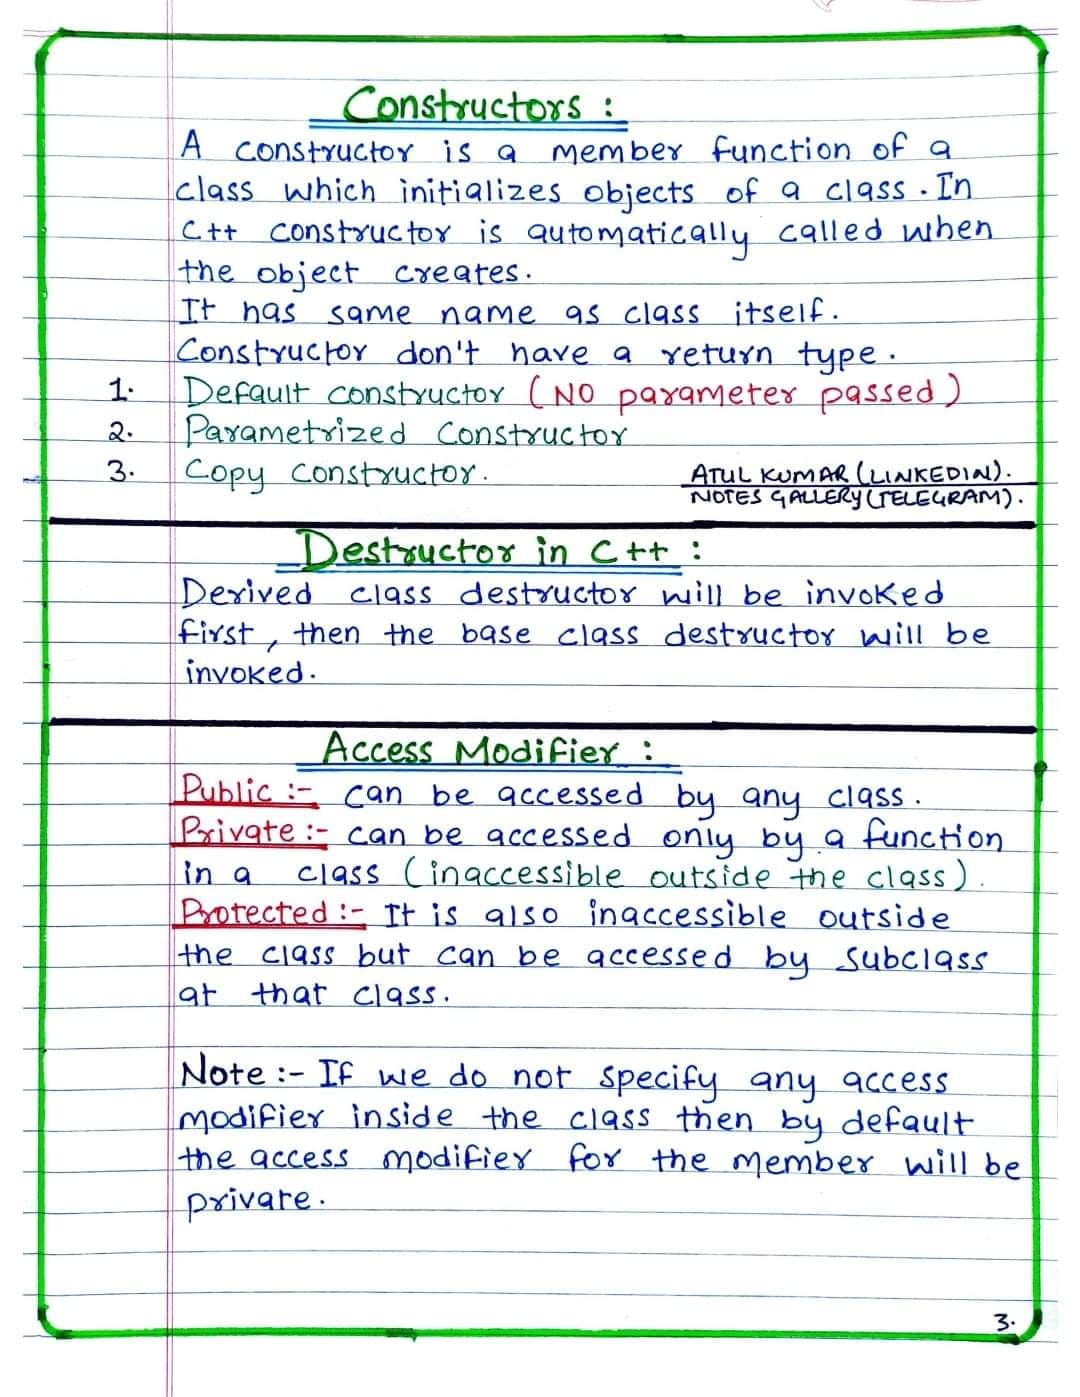 Constructors :
A constructor is a member function of a
class which initializes objects of a class. In
C++ constructor is automatically called when
the object creates.
It has same name as class itself.
Constructor don't have a return type.
1. Default constructor (NO parameter passed)
2. Parametrized Constructor
3. Copy constructor.
ATUL KUMAR (LINKEDIN).
NOTES GALLERY (TELEGRAM).
Destructor in C++ :
Derived class destructor will be invoked
first, then the base class destructor will be
invoked.
Access Modifier :
Public :- can be accessed by any class.
Private :- can be accessed only by a function
in a class (inaccessible outside the class).
Protected :- It is also inaccessible outside
the class but can be accessed by subclass
at that class.
Note :- If we do not specify any access
modifier inside the class then by default
the access modifier for the member will be
private.
3.